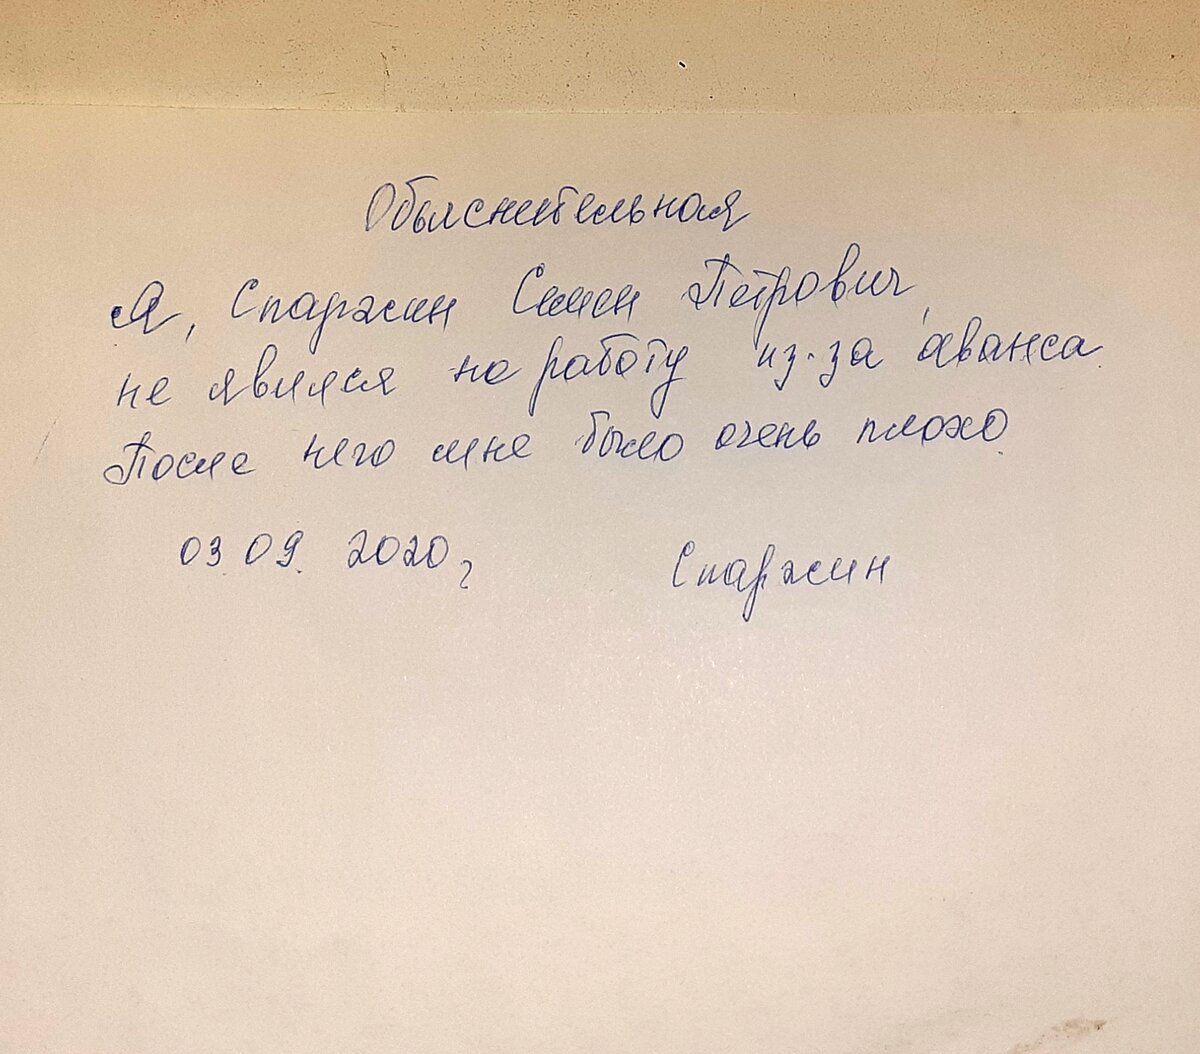 Обяснительная
Я, Спаржин Семен Петрович,
не явился на работу из-за аванса.
После него мне было очень плохо.
03.09.2020г Спаржин